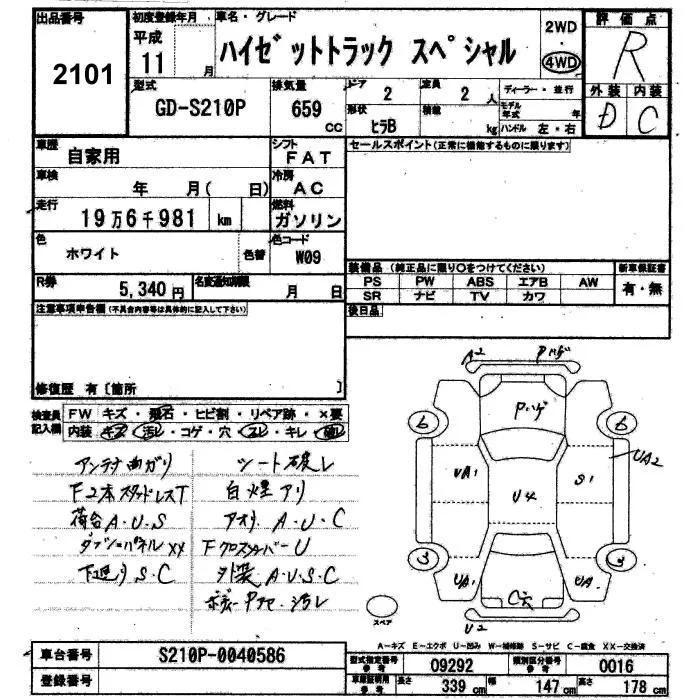 出品番号 2101
初度登録年月 平成 11 月
車名・グレード ハイゼットトラック スペシャル
2WD・4WD
評価点 R
外装 D 内装 C
型式 GD-S210P
排気量 659 CC
ドア 2
定員 2 人
形状 ヒラB
積載 kg
ディーラー・並行
モデル年式 年
ハンドル 左・右
車歴 自家用
シフト FAT
車検 年 月( 日)
冷房 AC
走行 19万6千981 km
燃料 ガソリン
色 ホワイト
色替
色コード W09
R券 5,340 円
名変通知期限 月 日
セールスポイント(正常に機能するものに限ります)
装備品(純正品に限り○をつけてください)
新車保証書 有・無
PS PW ABS エアB AW
SR ナビ TV カワ
後日品
注意事項申告欄(不具合内容等は具体的に記入して下さい)
修復歴 有〔箇所 〕
検査員記入欄
FW キズ・飛石・ヒビ割・リペア跡・×要
内装 キズ・汚レ・コゲ・穴・スレ・キレ・破レ
アンテナ曲ガリ シート破レ
F2本スタッドレスT 白煙アリ
荷台A・U・S アオリ A・U・C
ダッシュパネルXX FクロスメンバーU
下廻りS・C 外装 A・U・S・C
ボデーPアセ・汚レ
A2 Pハゲ
Pハゲ
6 6
UA1 U4 S1 UA2
3 3
UA1 UA
C穴
U2
スペア
A-キズ E-エクボ U-凹み W-補修跡 S-サビ C-腐食 XX-交換済
車台番号 S210P-0040586
登録番号
型式指定番号 参考 09292
類別区分番号 参考 0016
車車証明用 参考 長さ 339 cm 幅 147 cm 高さ 178 cm